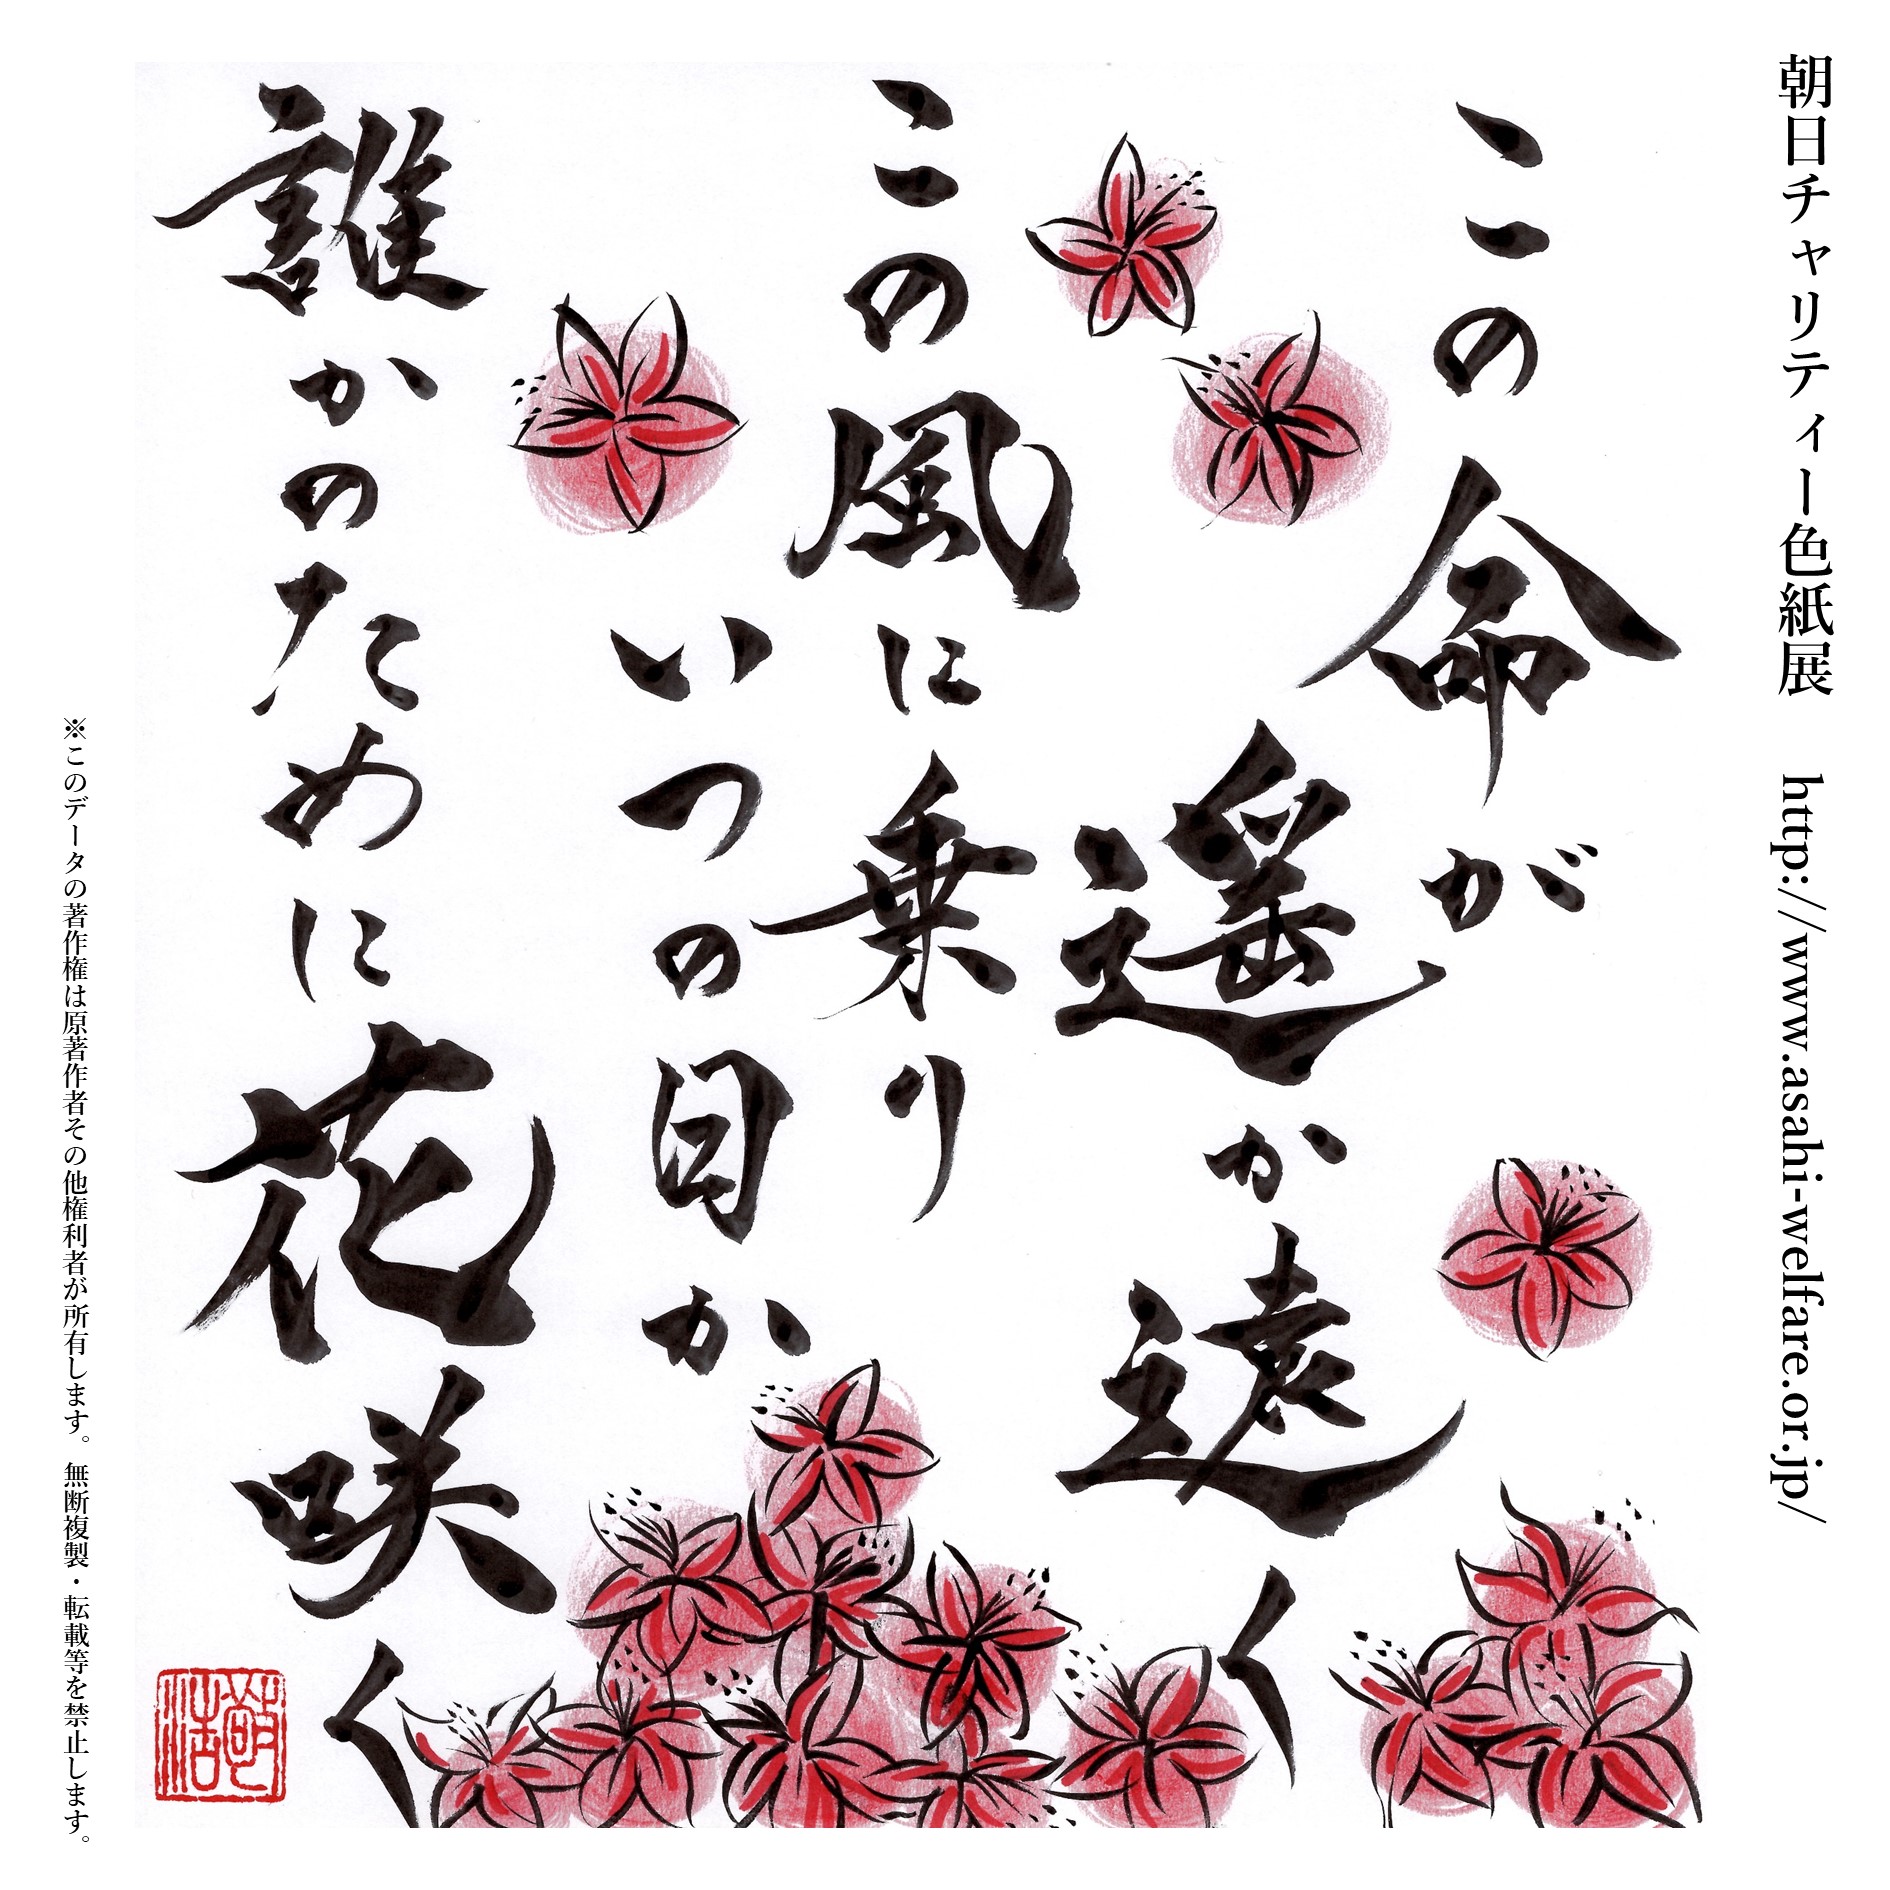 朝日チャリティー色紙展 http://www.asahi-welfare.or.jp/
この命が
遥か遠く
この風に乗り
いつの日か
誰かのために花咲く
※このデータの著作権は原著作者その他権利者が所有します。無断複製・転載等を禁止します。